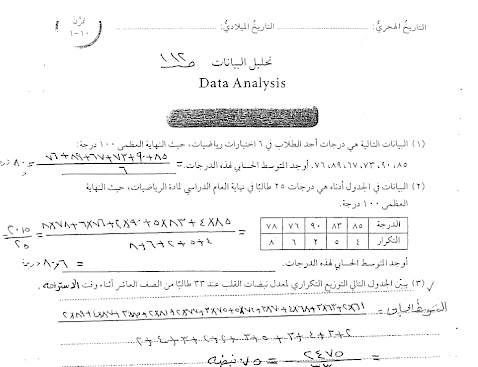 تمرّن
١-١٠
التاريخ الهجري: التاريخ الميلادي:
تحليل البيانات ص١١٢
Data Analysis
(١) البيانات التالية هي درجات أحد الطلاب في ٦ اختبارات رياضيات، حيث النهاية العظمى ١٠٠ درجة:
٨٥، ٩٠، ٧٣، ٦٧، ٨٩، ٧٦. أوجد المتوسط الحسابي لهذه الدرجات. = ٨٥+٩٠+٧٣+٦٧+٨٩+٧٦ / ٦ = ٨٠ درجة
(٢) البيانات في الجدول أدناه هي درجات ٢٥ طالبًا في نهاية العام الدراسي لمادة الرياضيات، حيث النهاية
العظمى ١٠٠ درجة.
الدرجة ٨٥ ٨٣ ٩٠ ٧٦ ٧٨
التكرار ٤ ٥ ٢ ٦ ٨
= ٨٥×٤+٨٣×٥+٩٠×٢+٧٦×٦+٧٨×٨
٤+٥+٢+٦+٨
= ٢٠١٥ / ٢٥
أوجد المتوسط الحسابي لهذه الدرجات. = ٨٠,٦ درجة
(٣) يبيّن الجدول التالي التوزيع التكراري لمعدل نبضات القلب عند ٣٣ طالبًا من الصف العاشر أثناء وقت الاستراحة.
المتوسط الحسابي =
= ٢٤٧٥ / ٣٣ = ٧٥ نبضة